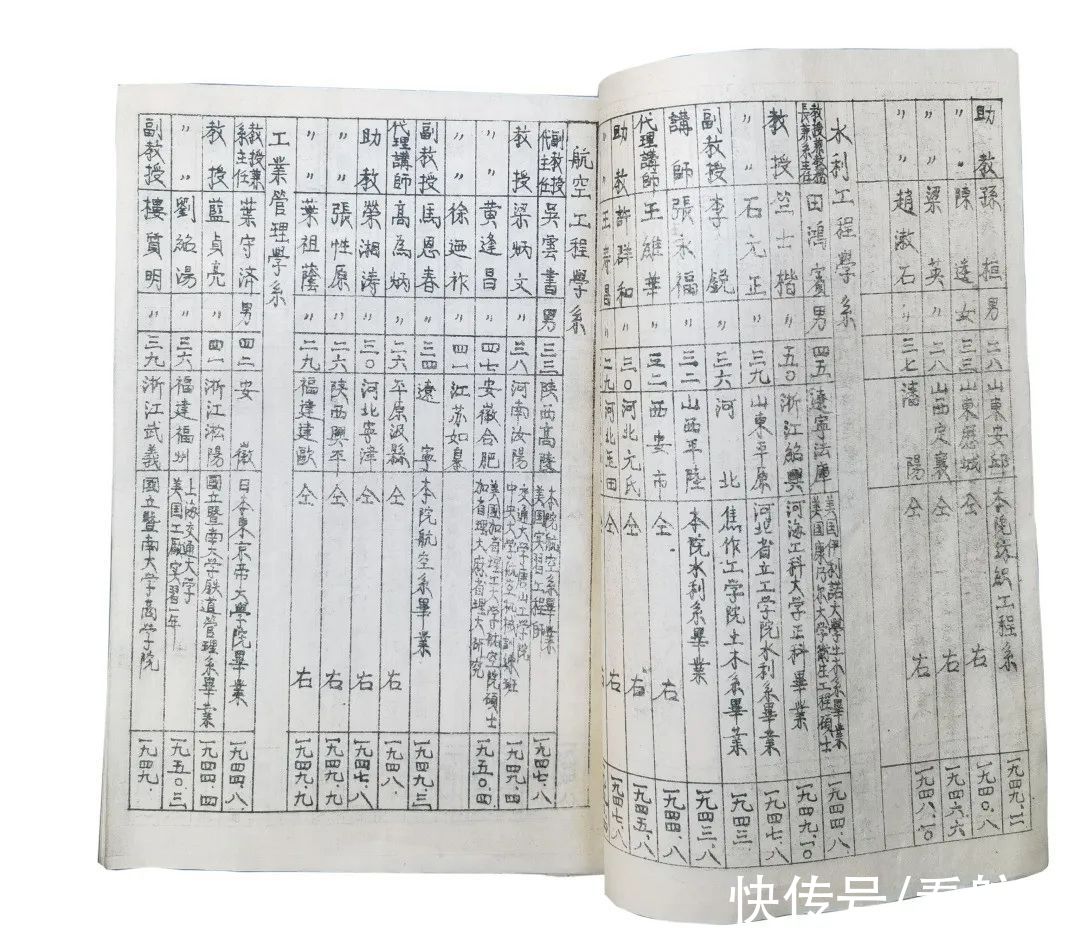 助教 孫桓 男 二八 山東安邱 本院紡織工程系 一九四九、二
〃 陳逵 女 三三 山東歷城 仝右 一九四〇、八
〃 梁英 〃 二八 山西定襄 仝右 一九四六、六
〃 趙漱石 三七 瀋陽 仝右 一九四八、一〇
水利工程學系
教授兼教務長兼系主任 田鴻賓 男 四五 遼寧法庫 美國伊利諾大學土木系畢業 美國康乃尔大学衛生工程碩士 一九四四、八
教授 竺士楷 〃 五〇 浙江紹興 河海工科大学正科畢業 一九四九、一〇
〃 石元正 〃 三九 山東平原 河北省立工学院水利系畢業 一九四七、八
副教授 李銳 〃 三六 河北 焦作工学院土木系畢業 一九四三、
講師 張永福 〃 三二 山西平陸 本院水利系畢業 一九四三、八
代理講師 王維華 〃 三二 西安市 仝右 一九四四、八
助教 許群和 〃 三〇 河北元氏 仝右 一九四五、八
〃 王 昌 〃 二九 河北玉田 仝右 一九四七、八
航空工程學系
副教授代主任 吳雲書 男 三三 陝西高陵 本院航空系畢業 美國實習工程師 一九四七、八
教授 梁炳文 〃 三八 河南汝陽 交通大学唐山工学院 中央大学航空机械訓練班 一九四九、四
〃 黃逢昌 〃 四七 安徽合肥 美國加省理工大学研究院碩士 加省理大 省理大研究 一九五〇、四
〃 徐迺祚 〃 四一 江苏如皋
副教授 馬恩春 〃 三四 遼寧 本院航空系畢業 一九四九、二
代理講師 高為炳 〃 二六 平原汲縣 仝右 一九四八、
助教 榮湘濤 〃 三〇 河北寧津 仝右 一九四七、八
〃 張性原 〃 二六 陝西興平 仝右 一九四九、九
〃 葉祖蔭 〃 二九 福建建歐 仝右 一九四九、九
工業管理學系
教授兼系主任 葉守济 男 四二 安徽 日本東京帝大學院畢業 一九四四、八
教授 藍貞亮 〃 四一 浙江淞陽 國立暨南大学鉄道管理系畢業 一九四四、四
〃 劉紹湯 〃 三六 福建福州 上海交通大学 美国工廠实習一年 一九五〇、三
副教授 樓質明 〃 三九 浙江武義 國立暨南大学商学院 一九四九、
快传号/看航